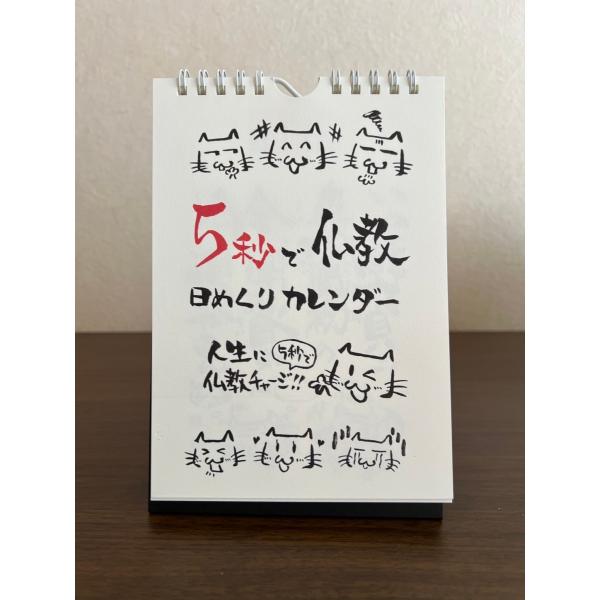 5秒で仏教
日めくりカレンダー
人生に5秒で
仏教チャージ!!